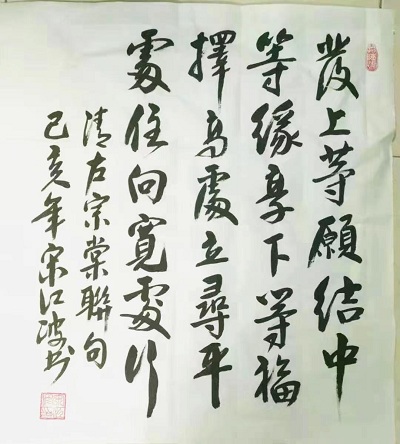 發上等願結中
等緣享下等福
擇高處立尋平
處住向寬處行
清左宗棠聯句
己亥年宋江波书